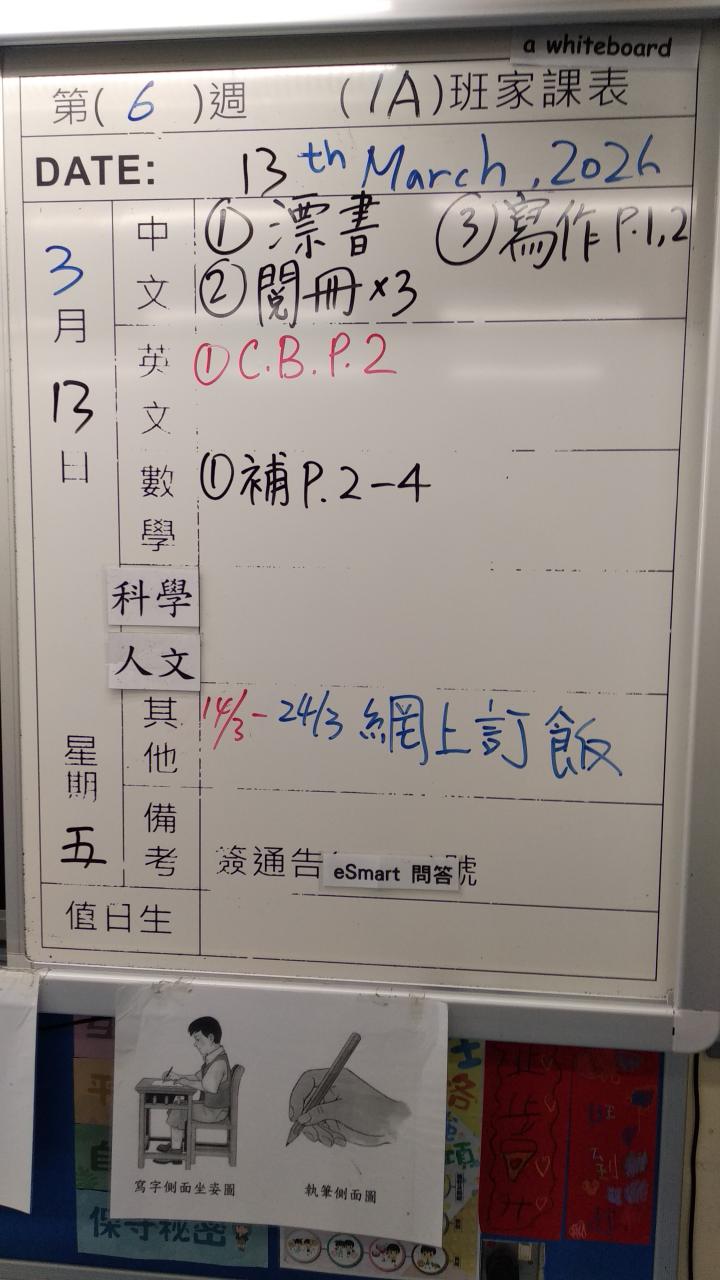 a whiteboard
第( 6 )週 (1A)班家課表
DATE: 13th March, 2026
3月13日
星期五
中文 ①漂書 ③寫作 P.1,2
②閱冊×3
英文 ①C.B.P.2
數學 ①補P.2-4
科學
人文
其他 14/3-24/3 網上訂飯
備考 簽通告 eSmart 問答 號
值日生
寫字側面坐姿圖 執筆側面圖
保守秘密